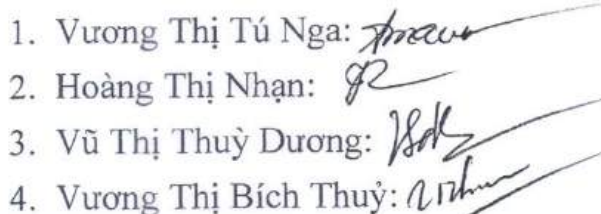 1. Vương Thị Tú Nga:
2. Hoàng Thị Nhạn:
3. Vũ Thị Thuỳ Dương:
4. Vương Thị Bích Thuỷ: